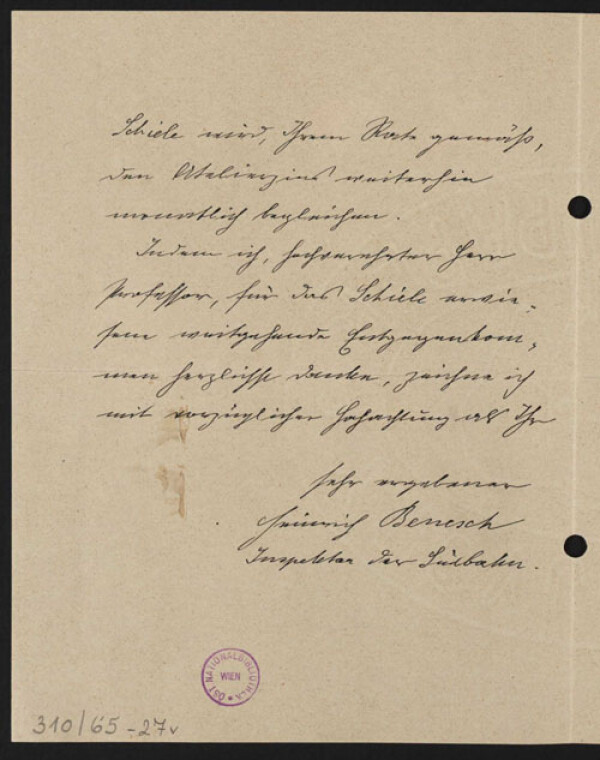 Schiele wird, Ihrem Rate gemäß,
den Atelierzins weiterhin
monatlich begleichen.
Indem ich, hochverehrter Herr
Professor, für das Schiele erwie-
sene weitgehende Entgegenkom-
men herzlichst danke, zeichne ich
mit vorzüglicher Hochachtung als Ihr
sehr ergebener
Heinrich Benesch
Inspektor der Südbahn.
ÖST. NATIONALBIBLIOTHEK
WIEN
310/65-27v